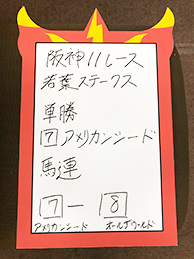 阪神11レース
若葉ステークス
単勝
7 アメリカンシード
馬連
7 ー 8
アメリカンシード オールザワールド